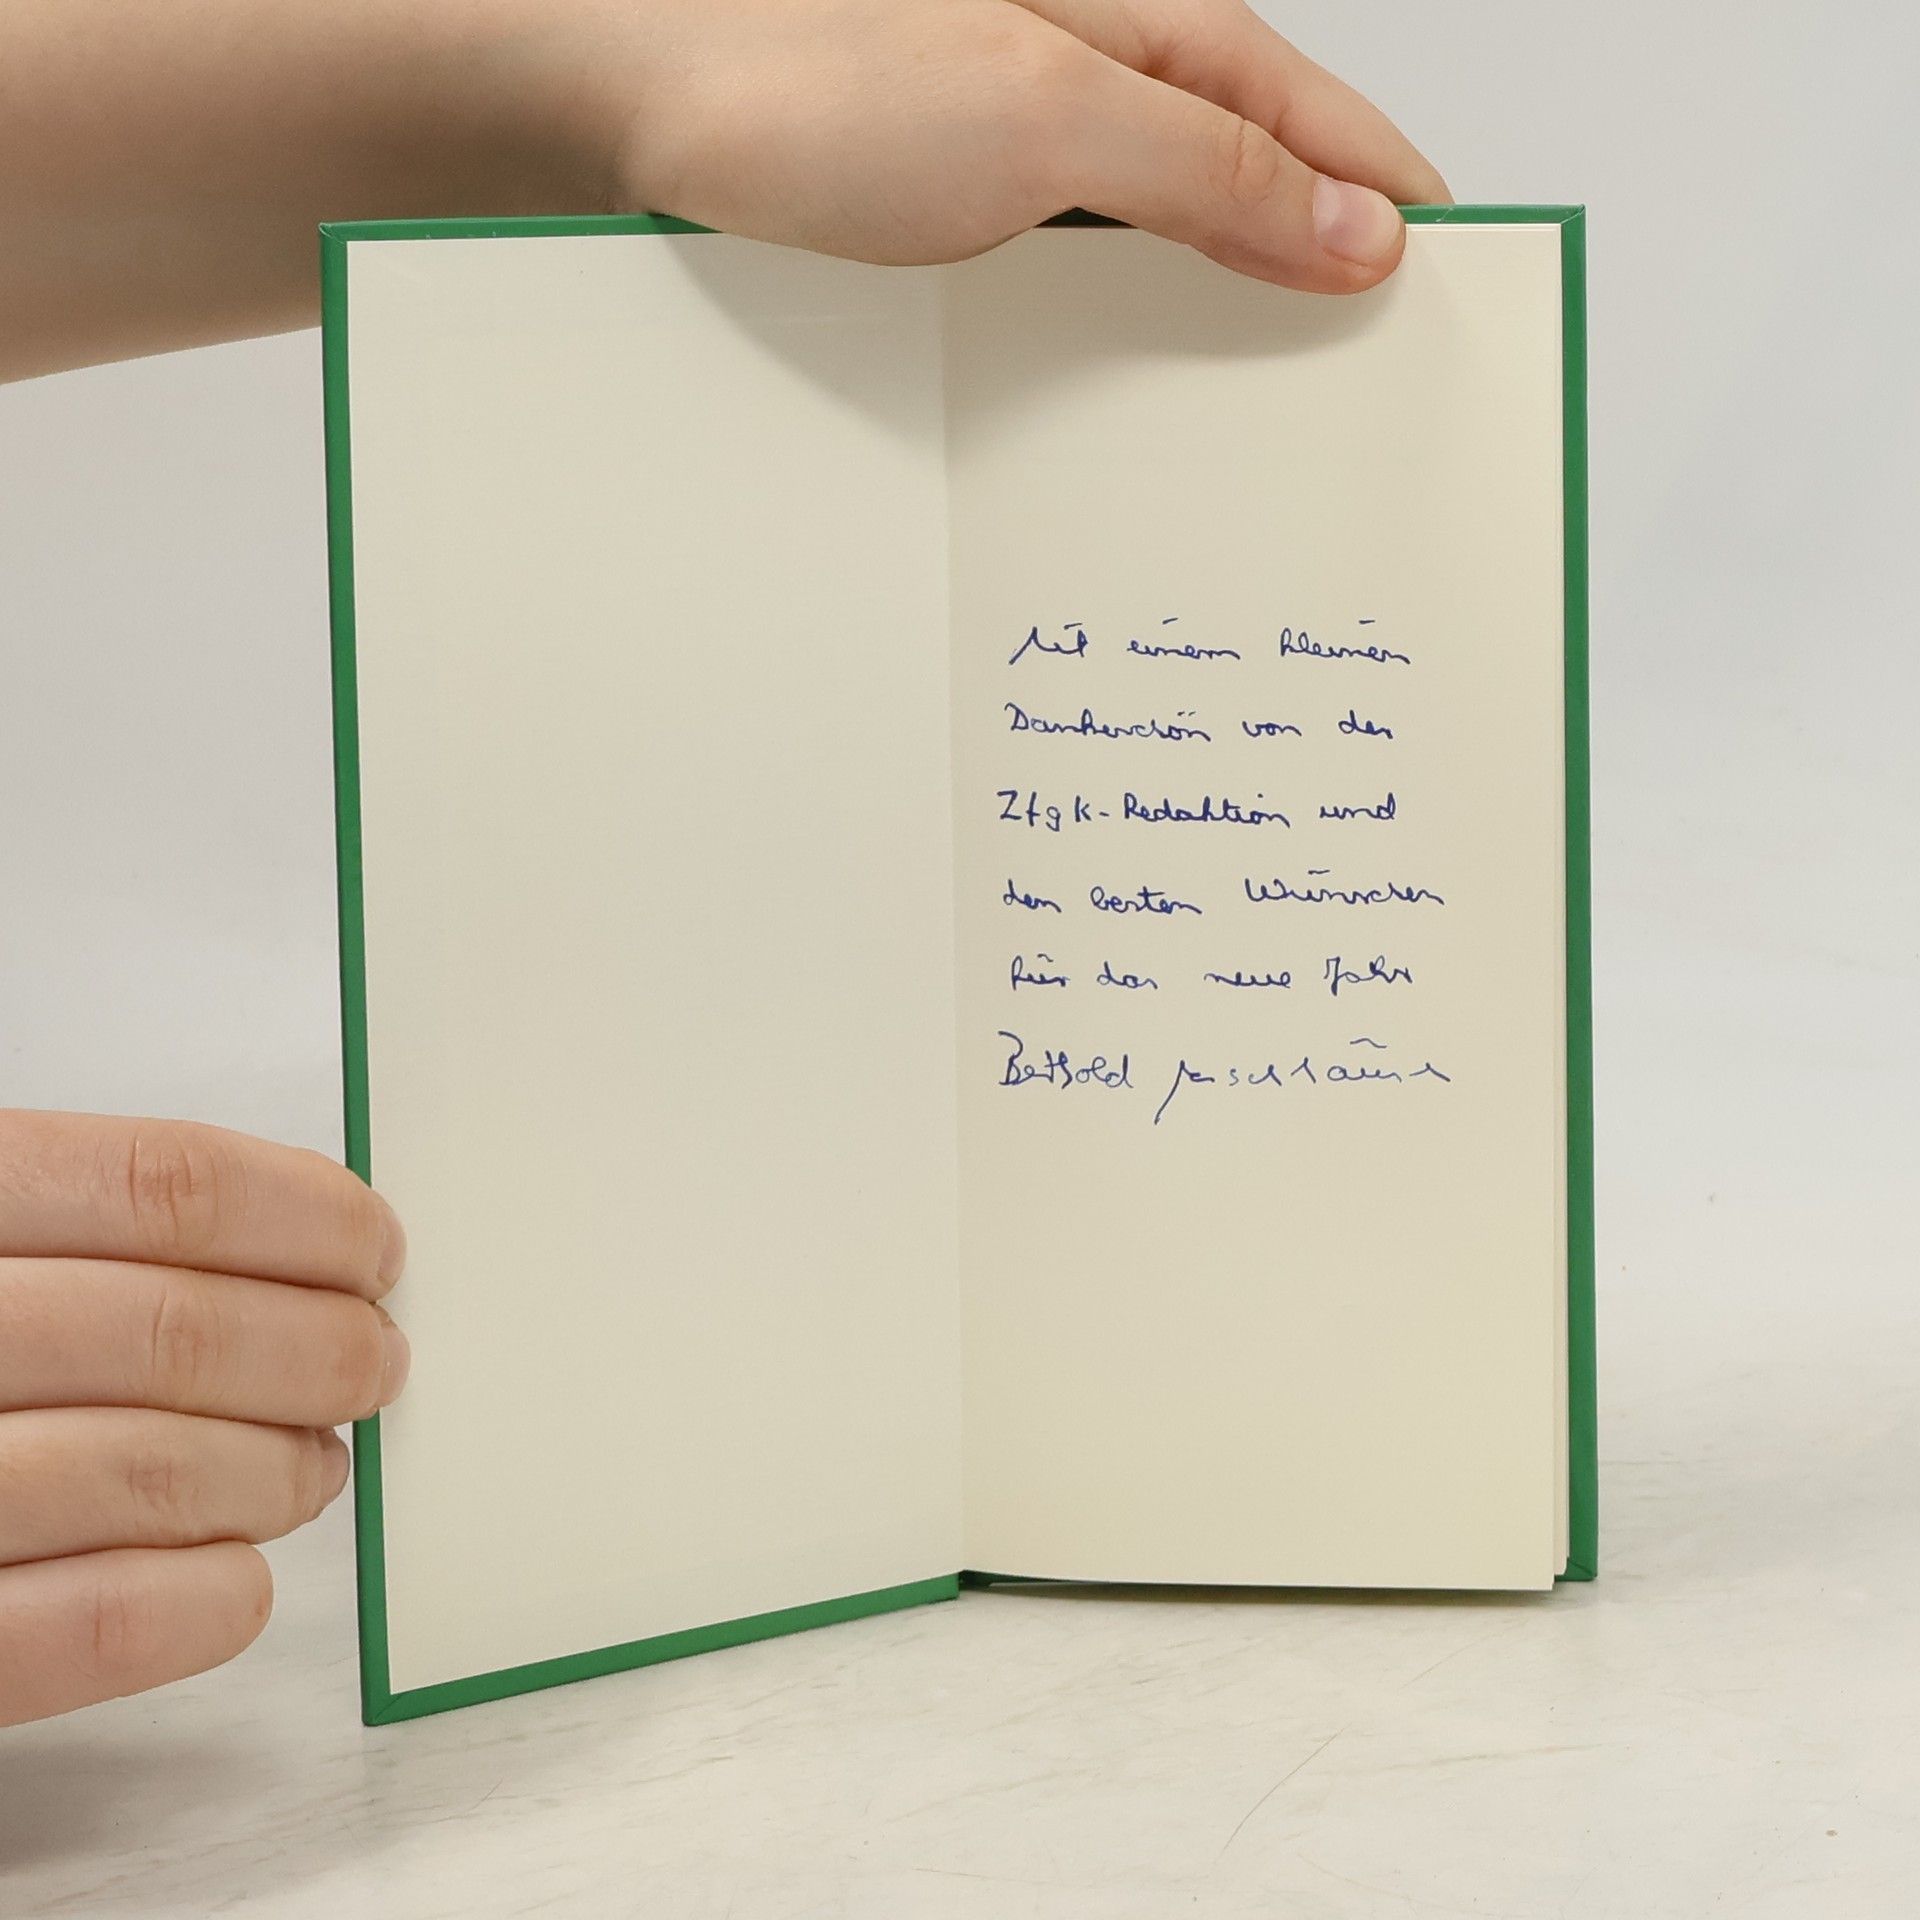 Mit einem kleinen
Dankeschön von der
ZfgK-Redaktion und
den besten Wünschen
für das neue Jahr
Berthold